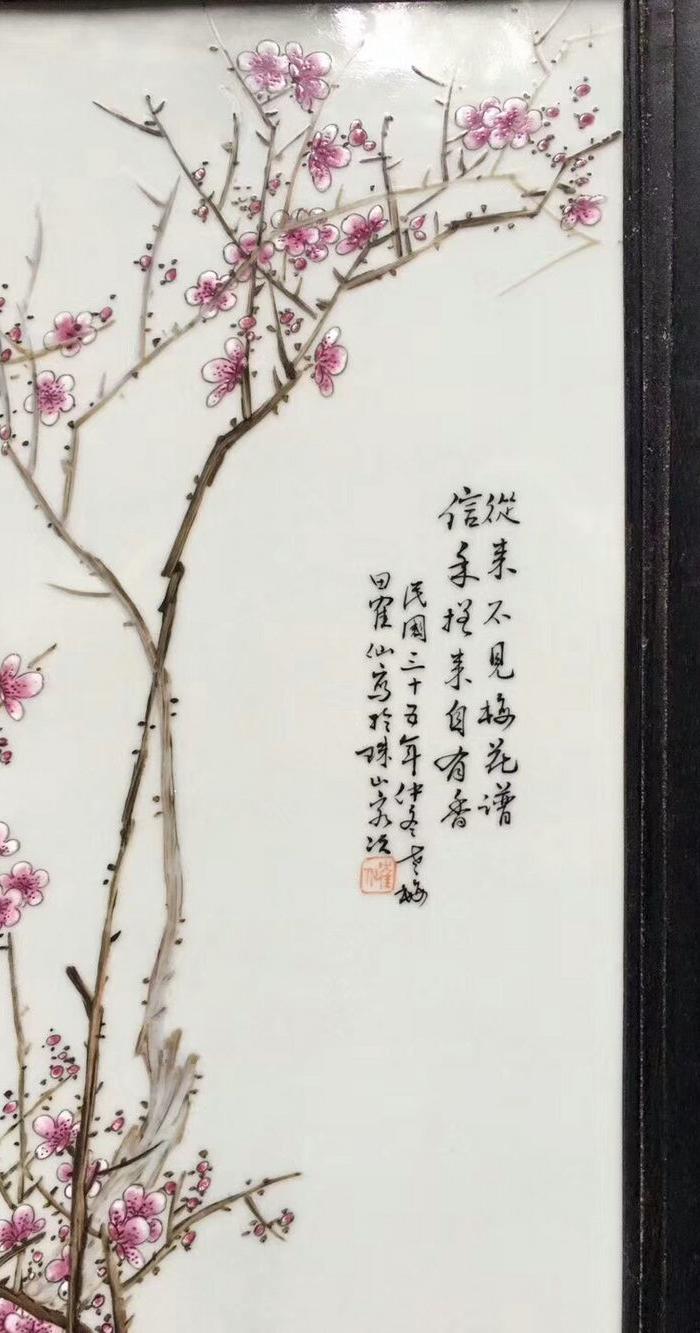 從来不見梅花譜
信手拈来自有香
民國三十五年仲冬老梅
田寉仙寫於珠山客次
寉仙